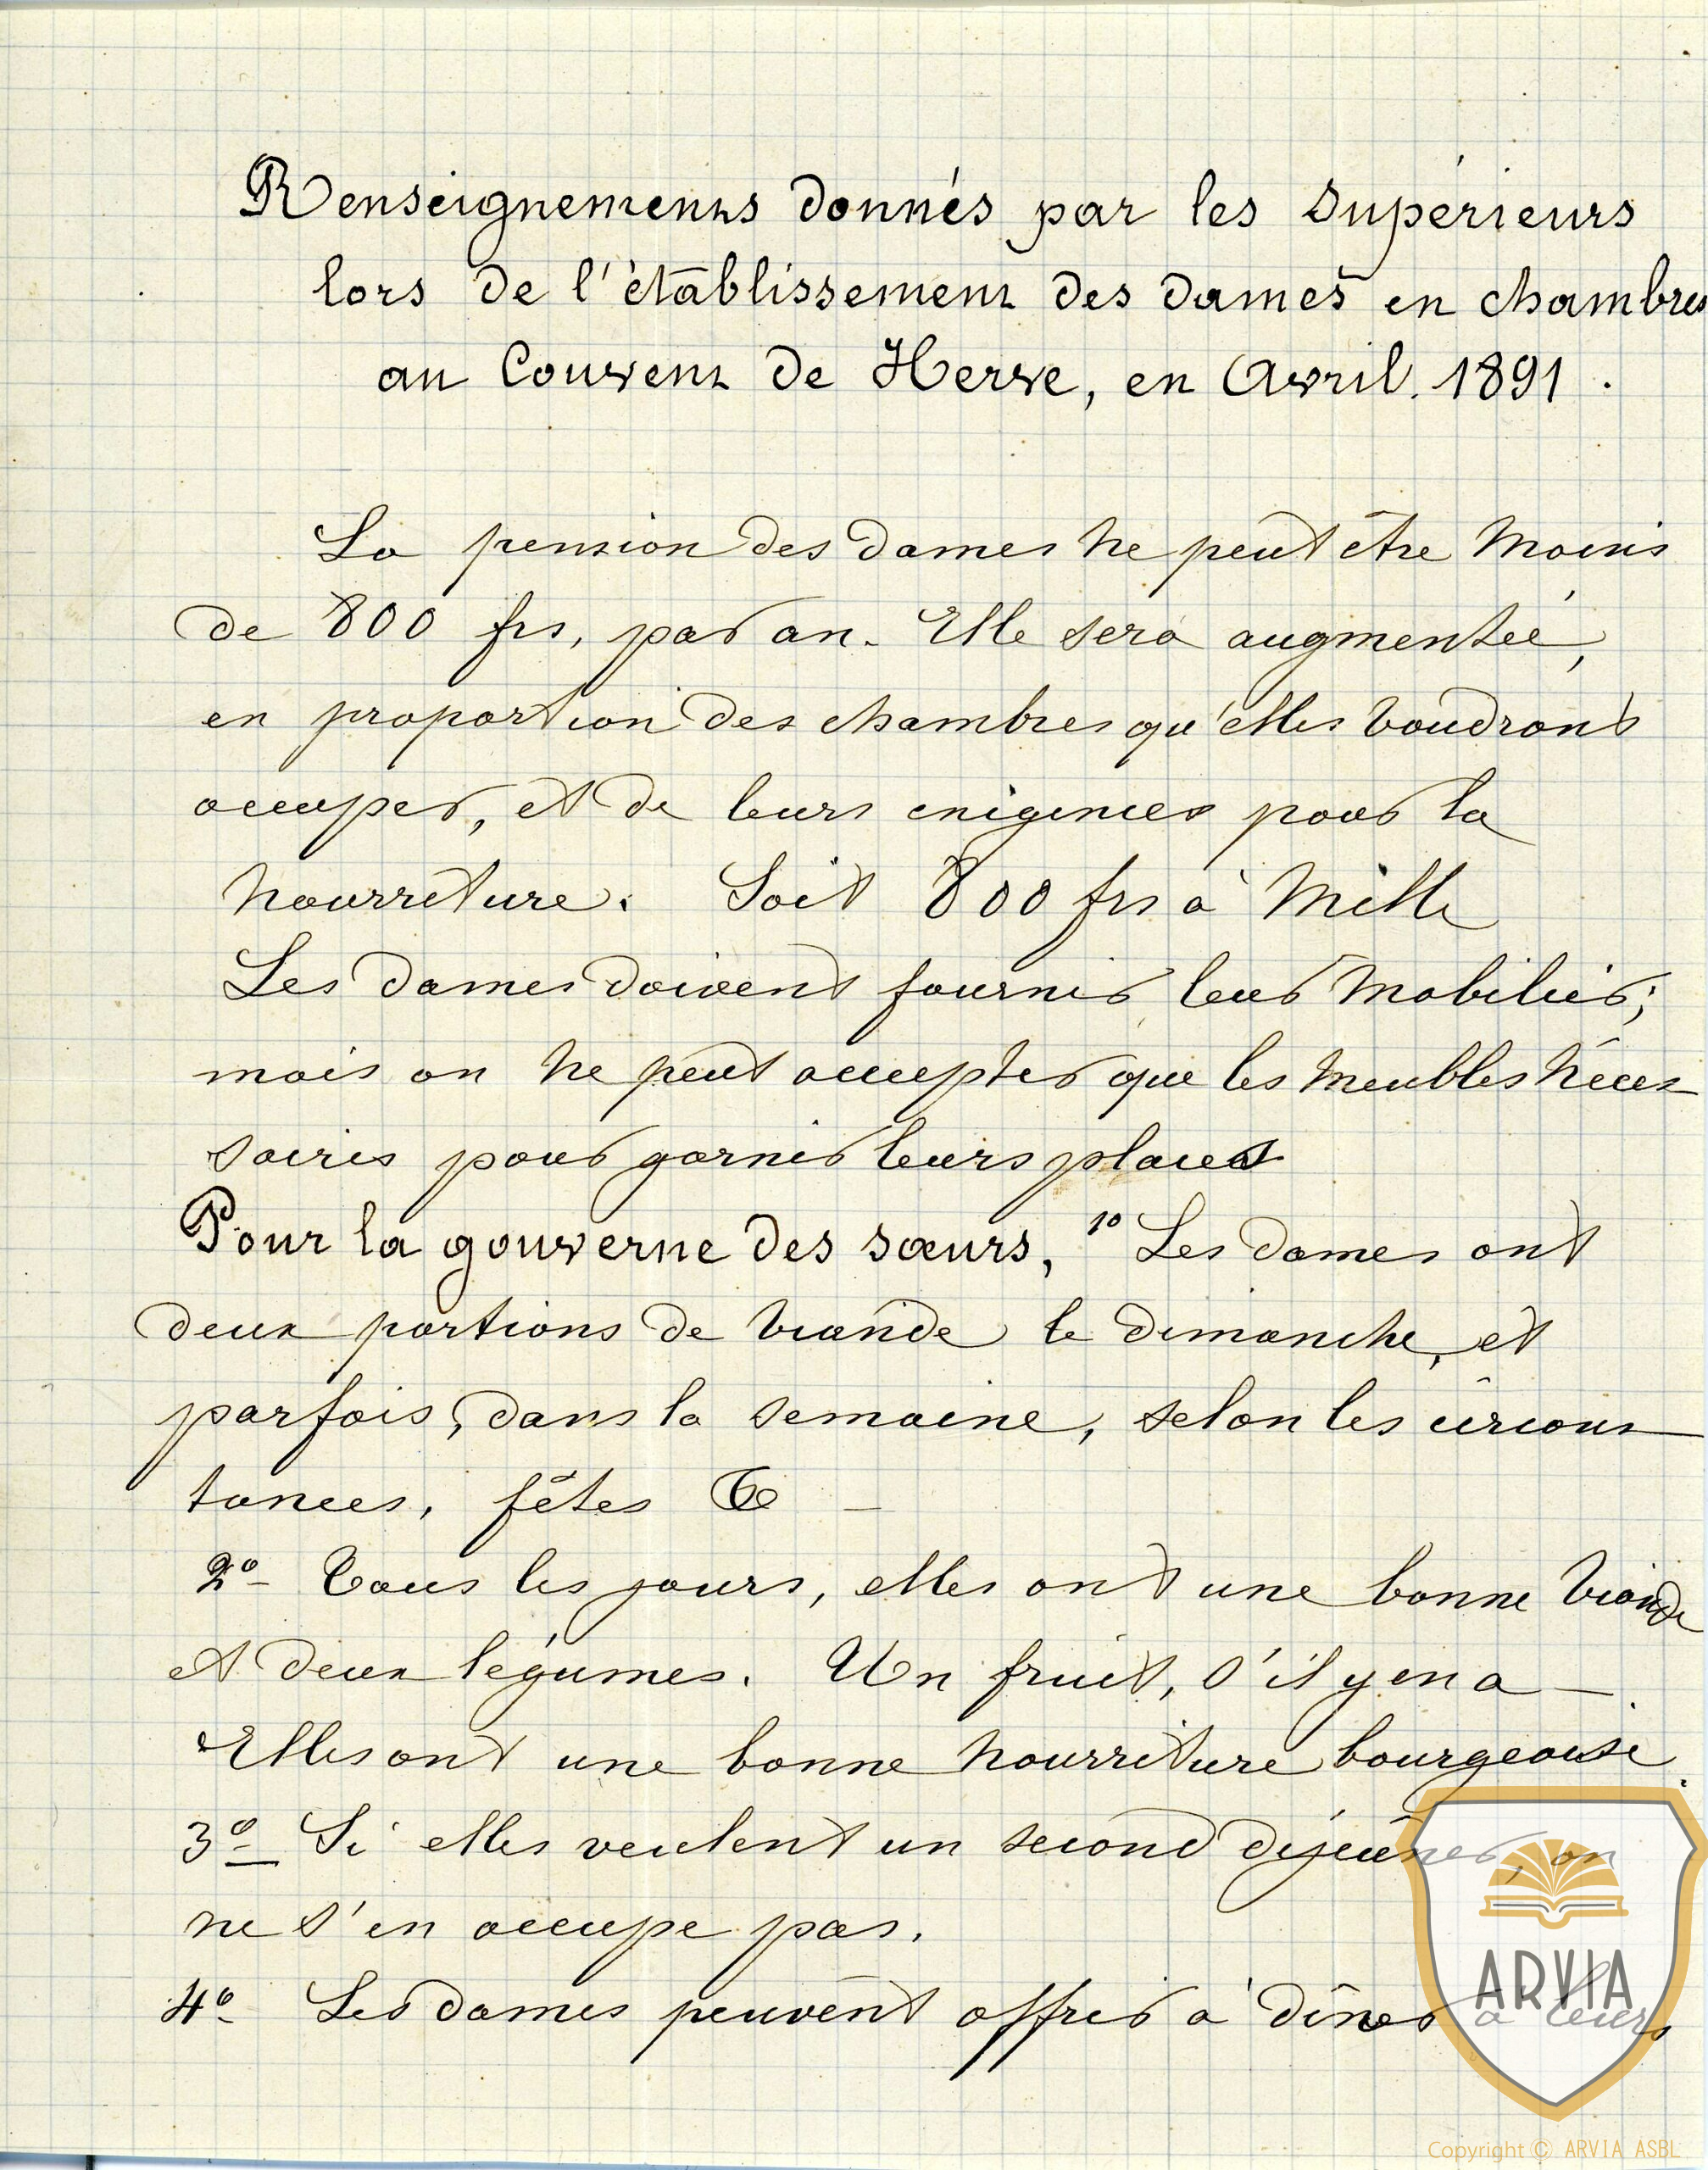 Renseignements donnés par les Supérieurs
lors de l'établissement des dames en chambres
au Couvent de Herve, en Avril. 1891.
La pension des dames ne peut être moins
de 800 frs, par an. Elle sera augmentée,
en proportion des chambres qu'elles voudront
occuper, et de leurs exigences pour la
nourriture. Soit 800 frs à mille
Les dames doivent fournir leur mobilier;
mais on ne peut accepter que les meubles néces
saires pour garnir leurs places
Pour la gouverne des sœurs, 1o Les dames ont
deux portions de viande le dimanche, et
parfois, dans la semaine, selon les circons
tances, fêtes &
2o- Tous les jours, elles ont une bonne viande
et deux légumes. Un fruit, s'il y en a —.
Elles ont une bonne nourriture bourgeoise.
3o Si elles veulent un second déjeûner, on
ne s'en occupe pas.
4o- Les dames peuvent offrir à dîner à leurs
ARVIA
Copyright © ARVIA ASBL